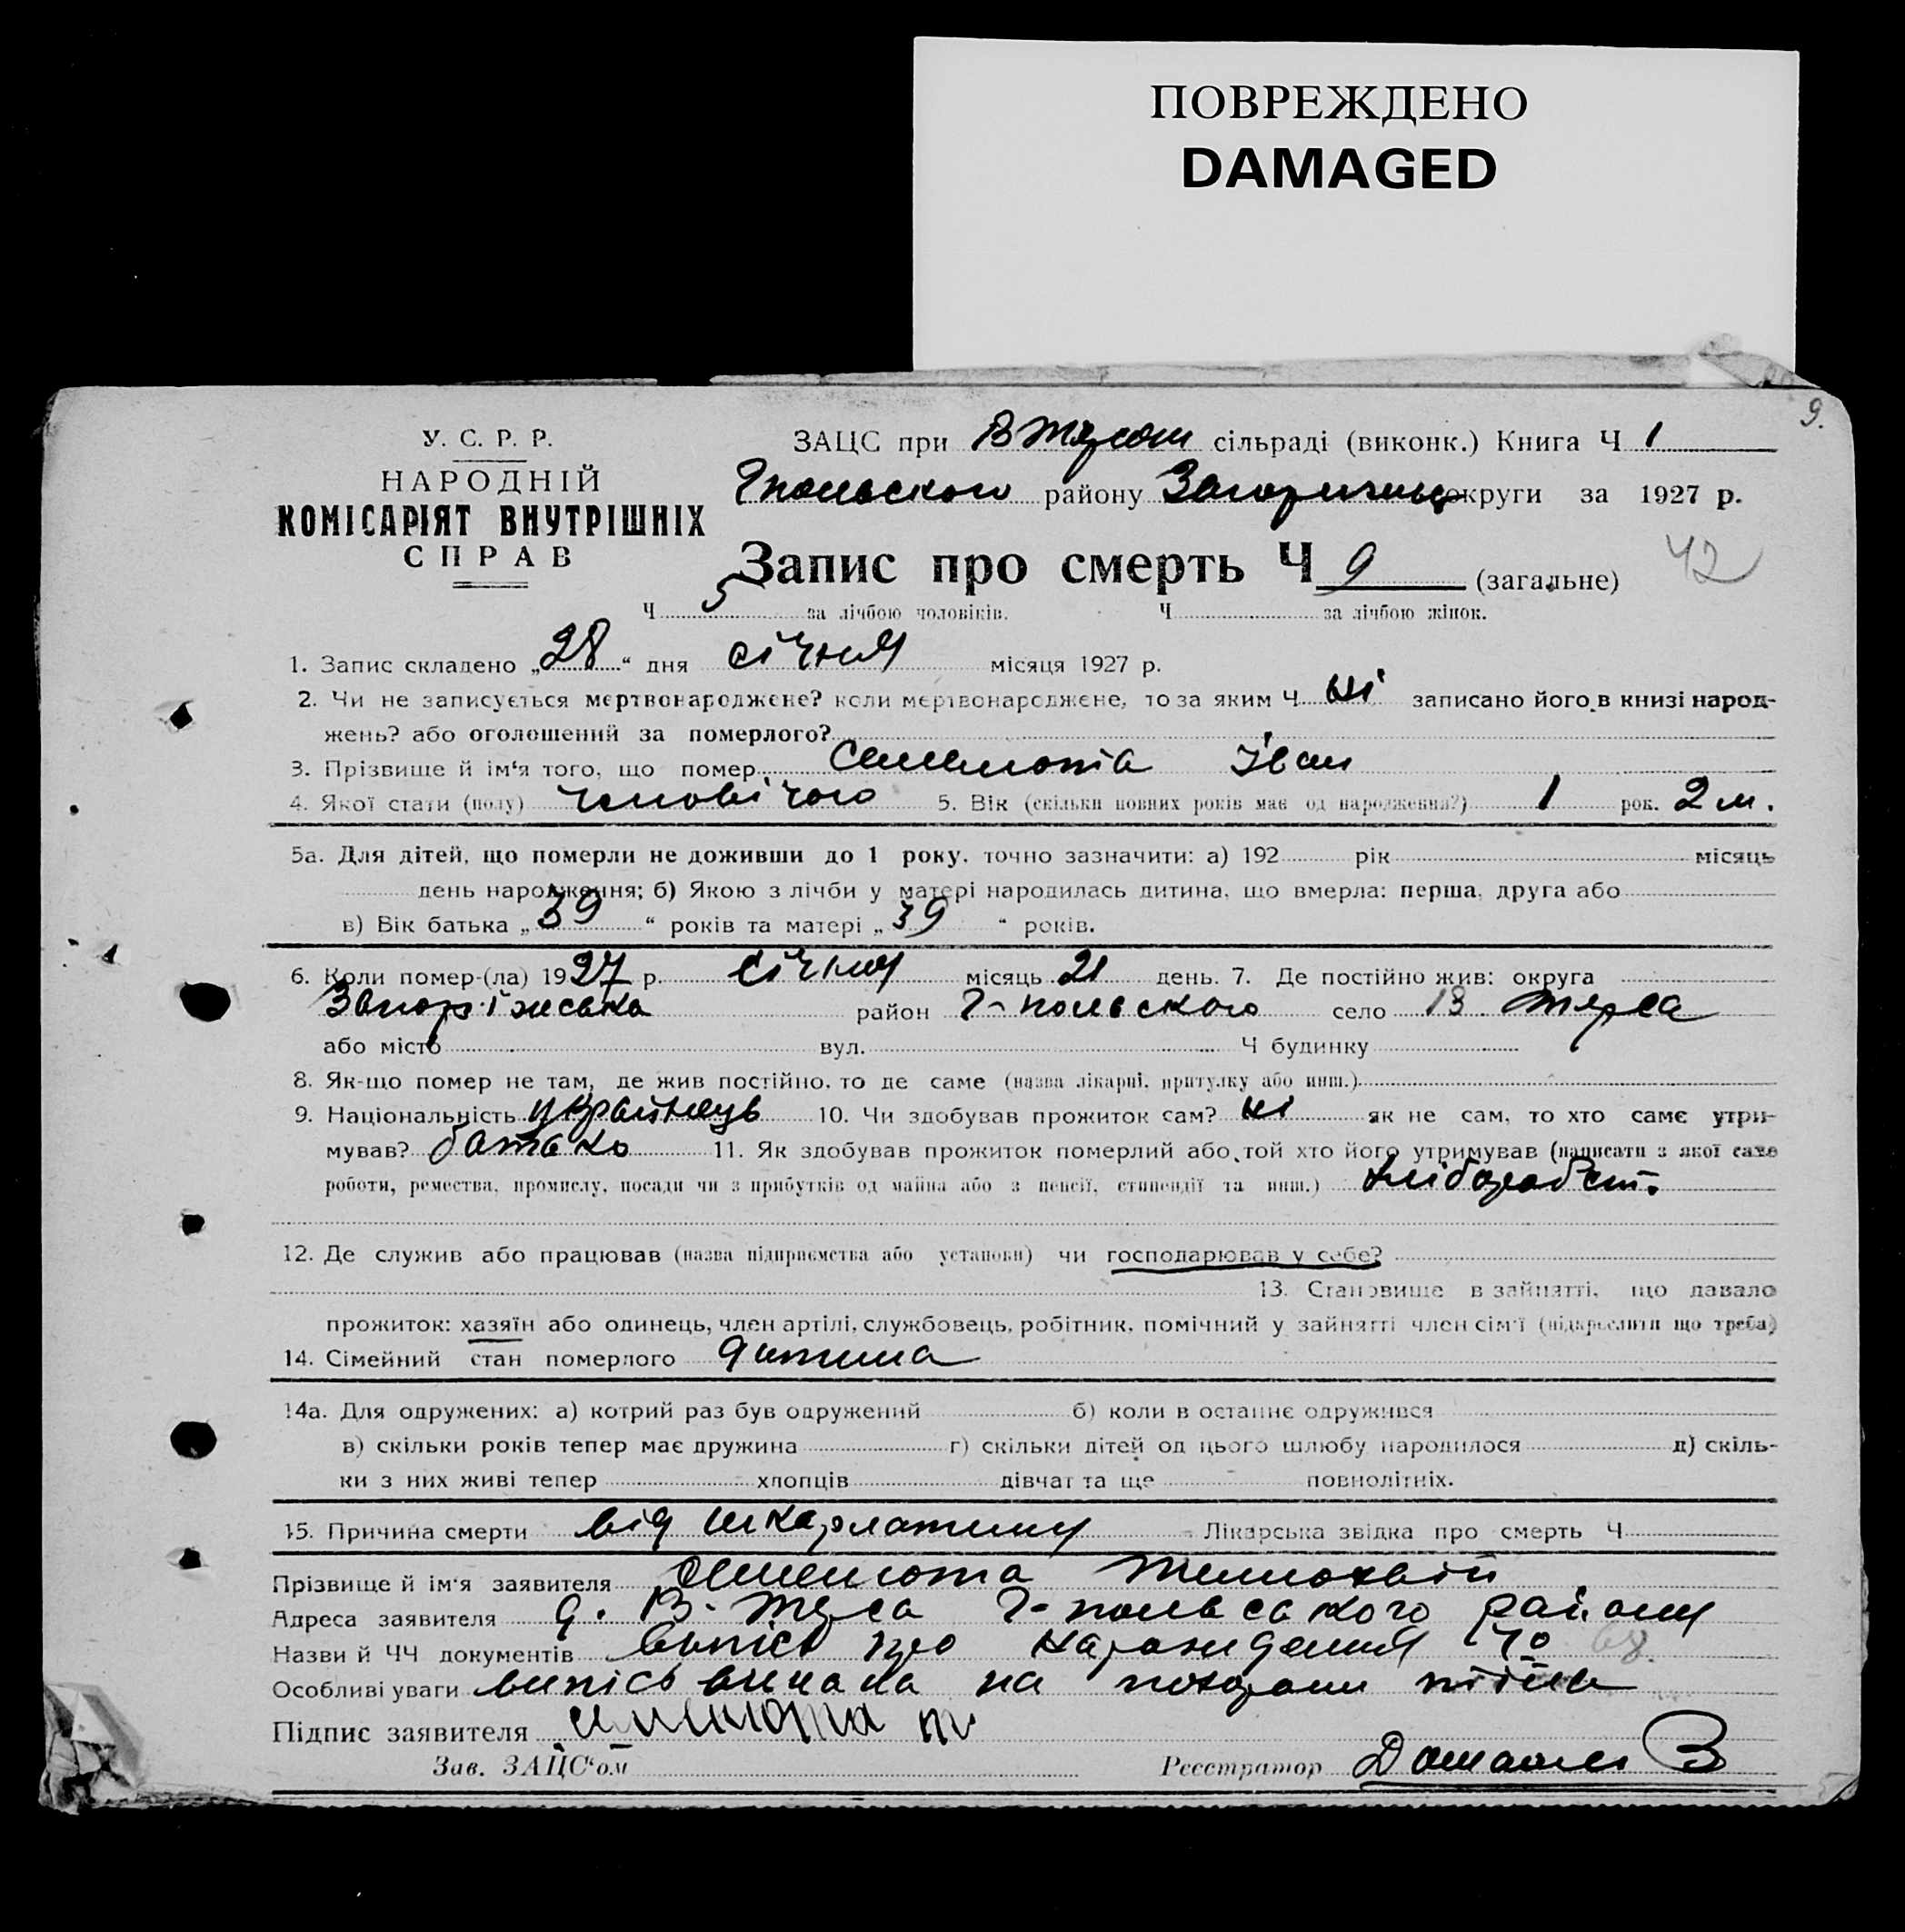 ПОВРЕЖДЕНО
DAMAGED
9.
У. С. Р. Р.
НАРОДНІЙ
КОМІСАРІЯТ ВНУТРІШНІХ
СПРАВ
ЗАЦС при В Терсян сільраді (виконк.) Книга Ч 1
Гпольського району округи за 1927 р.
Запис про смерть Ч 9 (загальне) 42
Ч 5 за лічбою чоловіків. Ч за лічбою жінок.
1. Запис складено „28“ дня січня місяця 1927 р.
2. Чи не записується мертвонароджене? коли мертвонароджене, то за яким Ч ні записано його в книзі народ-
жень? або оголошений за померлого?
3. Прізвище й ім‘я того, що помер Семенюта Іван
4. Якої стати (полу) чоловічого 5. Вік (скільки повних років має од народження?) 1 рок. 2 м.
5а. Для дітей, що померли не доживши до 1 року, точно зазначити: а) 192 рік місяць
день народження; б) Якою з лічби у матері народилась дитина, що вмерла: перша, друга або
в) Вік батька „39“ років та матері „39“ років.
6. Коли помер-(ла) 1927 р. січня місяць 21 день. 7. Де постійно жив: округа
Запоріжська район Г-польского село В. Терса
або місто вул. Ч будинку
8. Як-що помер не там, де жив постійно, то де саме (назва лікарні, притулку або инш.)
9. Національність українець 10. Чи здобував прожиток сам? ні як не сам, то хто саме утри-
мував? батько 11. Як здобував прожиток померлий або той хто його утримував (написати з якої саме
роботи, ремества, промислу, посади чи з прибутків од майна або з пенсії, стипендії та инш.) хлібороб
12. Де служив або працював (назва підприємства або установи) чи господарював у себе?
13. Становище в зайнятті, що давало
прожиток: хазяїн або одинець, член артілі, службовець, робітник, помічний у зайнятті член сім‘ї (підкреслити що треба)
14. Сімейний стан померлого дитина
14а. Для одружених: а) котрий раз був одружений б) коли в останнє одружився
в) скільки років тепер має дружина г) скільки дітей од цього шлюбу народилося д) скіль-
ки з них живі тепер хлопців дівчат та ще повнолітніх.
15. Причина смерти від шкарлатини Лікарська звідка про смерть Ч
Прізвище й ім‘я заявителя Семенюта Тимохвій
Адреса заявителя с. В. Терса Г-польського району
Назви й ЧЧ документів випісь про народження
Особливі уваги випісь видана на похорони
Підпис заявителя Семенюта т
Зав. ЗАЦС‘ом Реєстратор